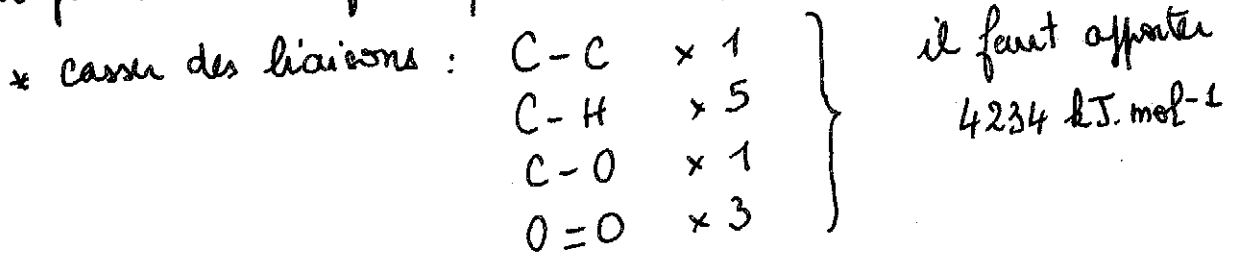 * casser des liaisons : C-C × 1
C-H × 5
C-O × 1
O=O × 3
il faut apporter
4234 kJ.mol-1